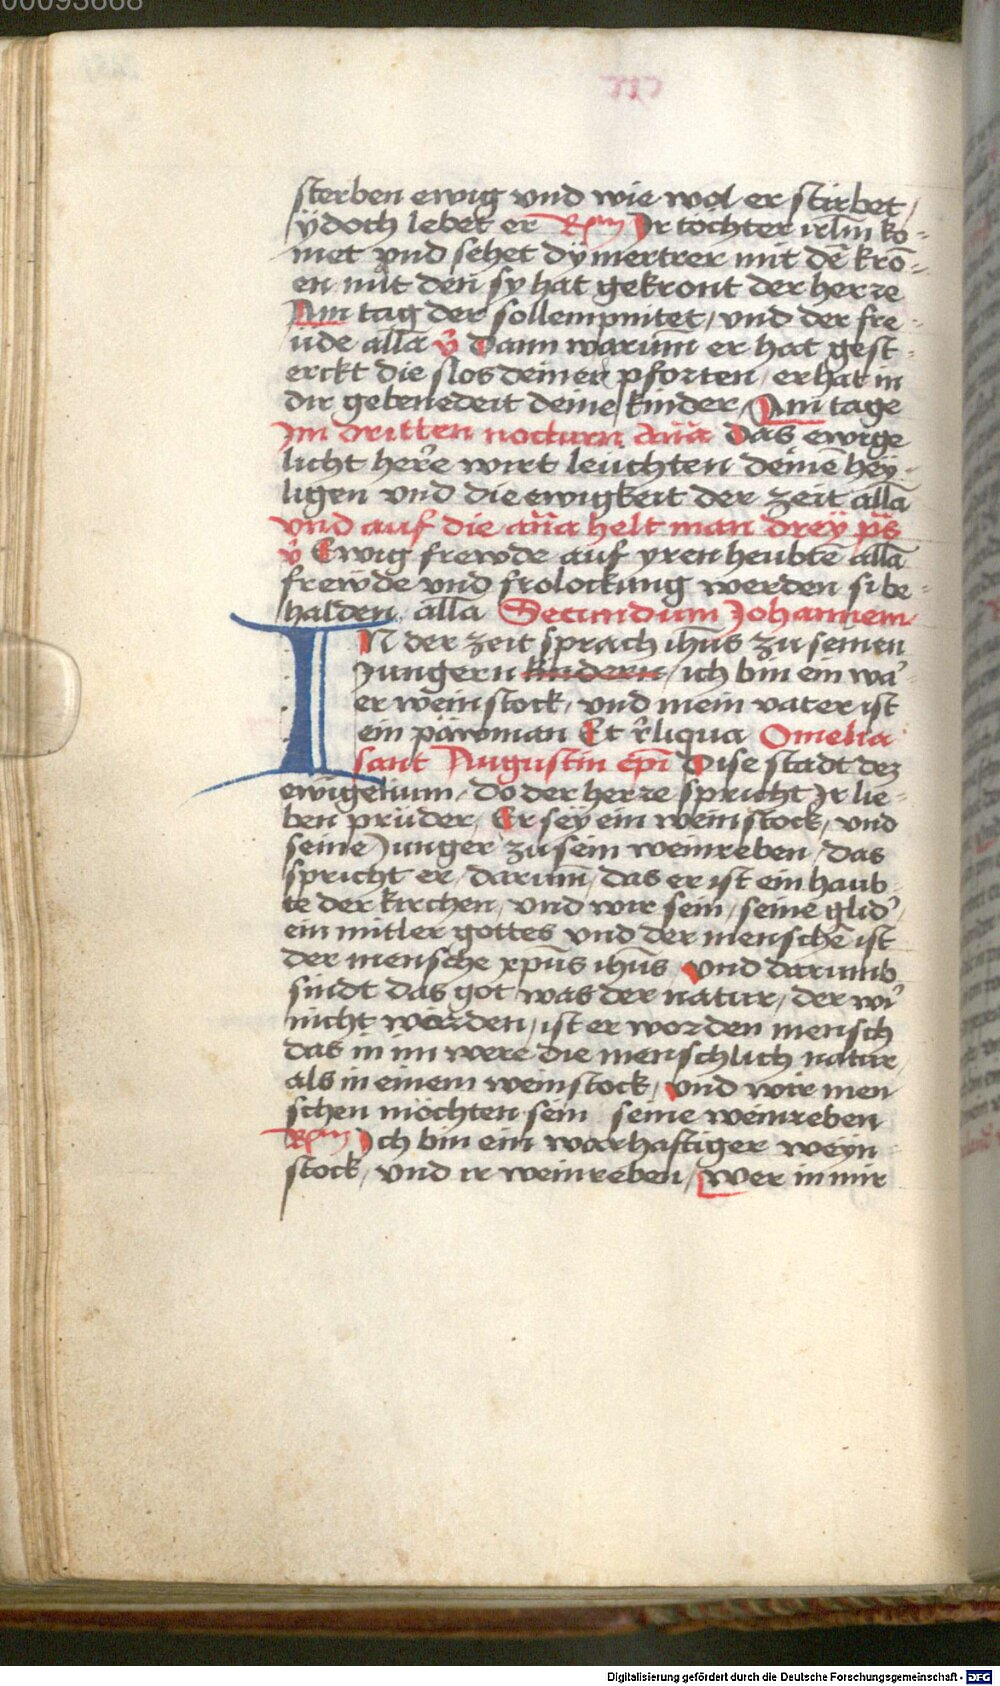 00093668
sterben ewig vnd wie wol er stirbet /
ÿdoch lebet er Rm̃ Ir töchter irlm̄ ko-
met vnd sehet dÿ mertrer mit dē krō-
en mit den sy hat gekront der herre
Am tag der sollempnitet / vnd der fre-
üde allā v̉ Dann warūm er hat gest-
erckt die slos deiner pforten / er hat in
dir gebenedeit deine kinder / Am tage
Im dritten nocturn an̄a Das ewige
licht herre wirt leüchten deinē heÿ-
ligen vnd die ewigkeit der zeit allā
vnd auf die an̄a helt man dreÿ ps̄
v̉ Ewig frewde auf yren heubtē allā
frewde vnd frolockung werden si be-
halden allā Secundum Johannem
IN der zeit sprach ihūs zu seinen
Jungern kindern / ich bin ein wa-
er weinstock / vnd mein vater ist
ein päwman Et r̉liqua Omelia
sant Augustin ep̄i Dise stadt dez
ewigelium / do der herre spricht Ir lie-
ben prüder / Er seÿ ein weinstock / vnd
seine Junger zu sein weinreben / das
spricht er / darūm / das er ist ein haub-
te der kirchen / vnd wir sein / seine glid'
ein mitler gottes vnd der menschē ist
der mensche xpūs ihūs vnd darumb
sindt das got was der natur / der wi'
nicht würden / ist er worden mensch
das in im were die menschlich natur /
als in einem weinstock / vnd wir men
schen möchten sein seine weinreben
Rm̃ Ich bin ein warhaftiger weÿn
stock / vnd ir weinreben / wer in mir
Digitalisierung gefördert durch die Deutsche Forschungsgemeinschaft - DFG